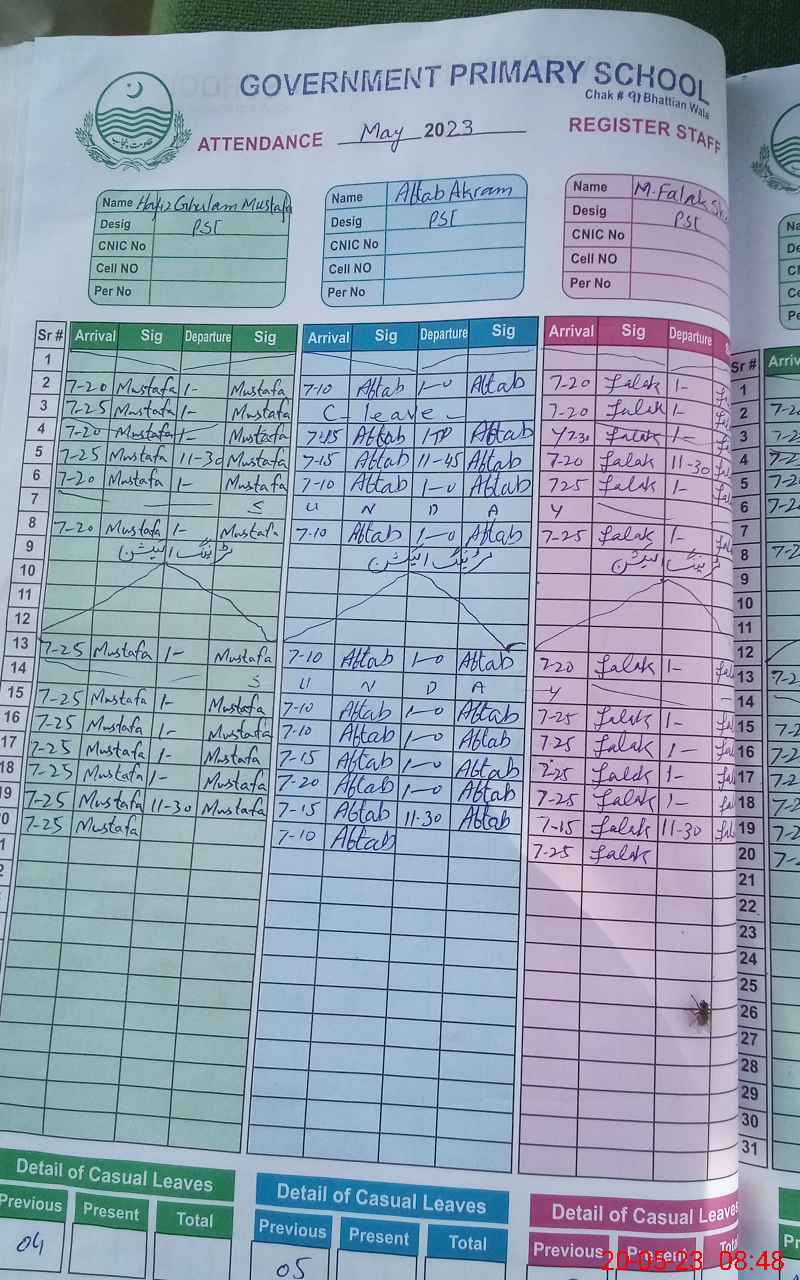 GOVERNMENT PRIMARY SCHOOL
Chak # 91 Bhattian Wala
ATTENDANCE May 2023 REGISTER STAFF
Name Hafiz Ghulam Mustafa Name Aftab Akram Name M.Falak
Desig PST Desig PST Desig PST
CNIC No CNIC No CNIC No
Cell NO Cell NO Cell NO
Per No Per No Per No
Sr # Arrival Sig Departure Sig Arrival Sig Departure Sig Arrival Sig Departure
1
2 7-20 Mustafa 1- Mustafa 7-10 Aftab 1-0 Aftab 7-20 Falak 1-
3 7-25 Mustafa 1- Mustafa C- leave - 7-20 Falak 1-
4 7-20 Mustafa 1- Mustafa 7-15 Aftab Aftab 7-30 Falak 1-
5 7-25 Mustafa 11-30 Mustafa 7-15 Aftab 11-45 Aftab 7-20 Falak 11-30
6 7-20 Mustafa 1- Mustafa 7-10 Aftab 1-0 Aftab 725 Falak 1-
7 S U N D A Y
8 7-20 Mustafa 1- Mustafa 7-10 Aftab 1-0 Aftab 7-25 Falak 1-
9 ٹریننگ الیکشن ٹریننگ الیکشن ٹریننگ الیکشن
10
11
12
13 7-25 Mustafa 1- Mustafa 7-10 Aftab 1-0 Aftab 7-20 Falak 1-
14 S U N D A Y
15 7-25 Mustafa 1- Mustafa 7-10 Aftab 1-0 Aftab 7-25 Falak 1-
16 7-25 Mustafa 1- Mustafa 7-10 Aftab 1-0 Aftab 7.25 Falak 1-
17 7-25 Mustafa 1- Mustafa 7-15 Aftab 1-0 Aftab 7-25 Falak 1-
18 7-25 Mustafa 1- Mustafa 7-20 Aftab 1-0 Aftab 7-25 Falak 1-
19 7-25 Mustafa 11-30 Mustafa 7-15 Aftab 11-30 Aftab 7-15 Falak 11-30
20 7-25 Mustafa 7-10 Aftab 7-25 Falak
Detail of Casual Leaves Detail of Casual Leaves Detail of Casual Leaves
Previous Present Total Previous Present Total Previous Present Total
04 05
Sr #
1
2
3
4
5
6
7
8
9
10
11
12
13
14
15
16
17
18
19
20
21
22
23
24
25
26
27
28
29
30
31
20-05-23 08:48